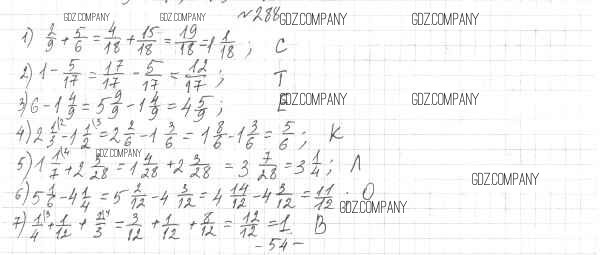 №288
GDZ.COMPANY GDZ.COMPANY GDZ.COMPANY GDZ.COMPANY
1) 2/9 + 5/6 = 4/18 + 15/18 = 19/18 = 1 1/18 ; С
2) 1 - 5/17 = 17/17 - 5/17 = 12/17 ; Т
3) 6 - 1 4/9 = 5 9/9 - 1 4/9 = 4 5/9 ; Е
GDZ.COMPANY GDZ.COMPANY
4) 2 1/3 - 1 1/2 = 2 2/6 - 1 3/6 = 1 8/6 - 1 3/6 = 5/6 ; К
GDZ.COMPANY
5) 1 1/7 + 2 3/28 = 1 4/28 + 2 3/28 = 3 7/28 = 3 1/4 ; Л
GDZ.COMPANY
6) 5 1/6 - 4 1/4 = 5 2/12 - 4 3/12 = 4 14/12 - 4 3/12 = 11/12 . О
GDZ.COMPANY
7) 1/4 + 1/12 + 2/3 = 3/12 + 1/12 + 8/12 = 12/12 = 1. В
- 54 -